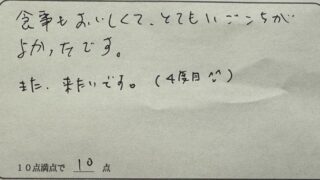 食事もおいしくて、とてもいごこちが
よかったです。
また、来たいです。(4度目^^)
10点満点で 10 点